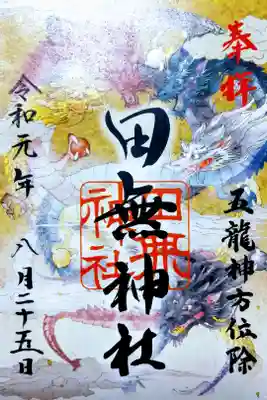 奉拝
五龍神方位除
田無神社
田無神社
令和元年 八月二十五日